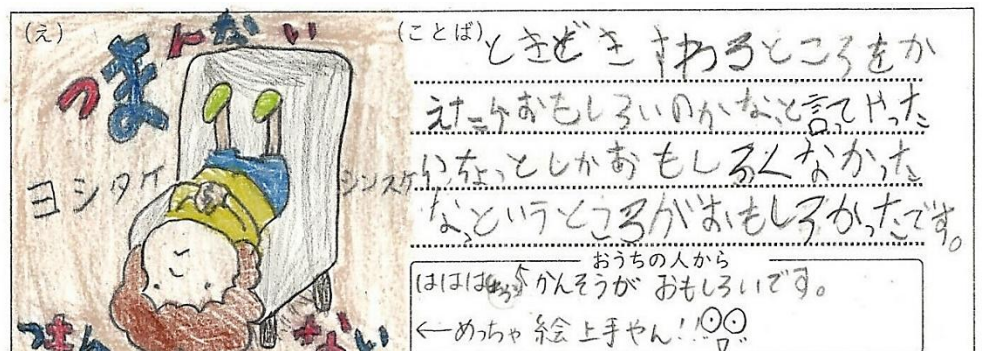 (え)
つまんない
ヨシタケ シンスケ
つまんない
(ことば)
ときどき さわるところをか
えたらおもしろいのかなと言てやった
ら、ちょっとしかおもしろくなかった
な、というところがおもしろかったです。
おうちの人から
ははは かんそうが おもしろいです。
←めっちゃ 絵 上手やん!!